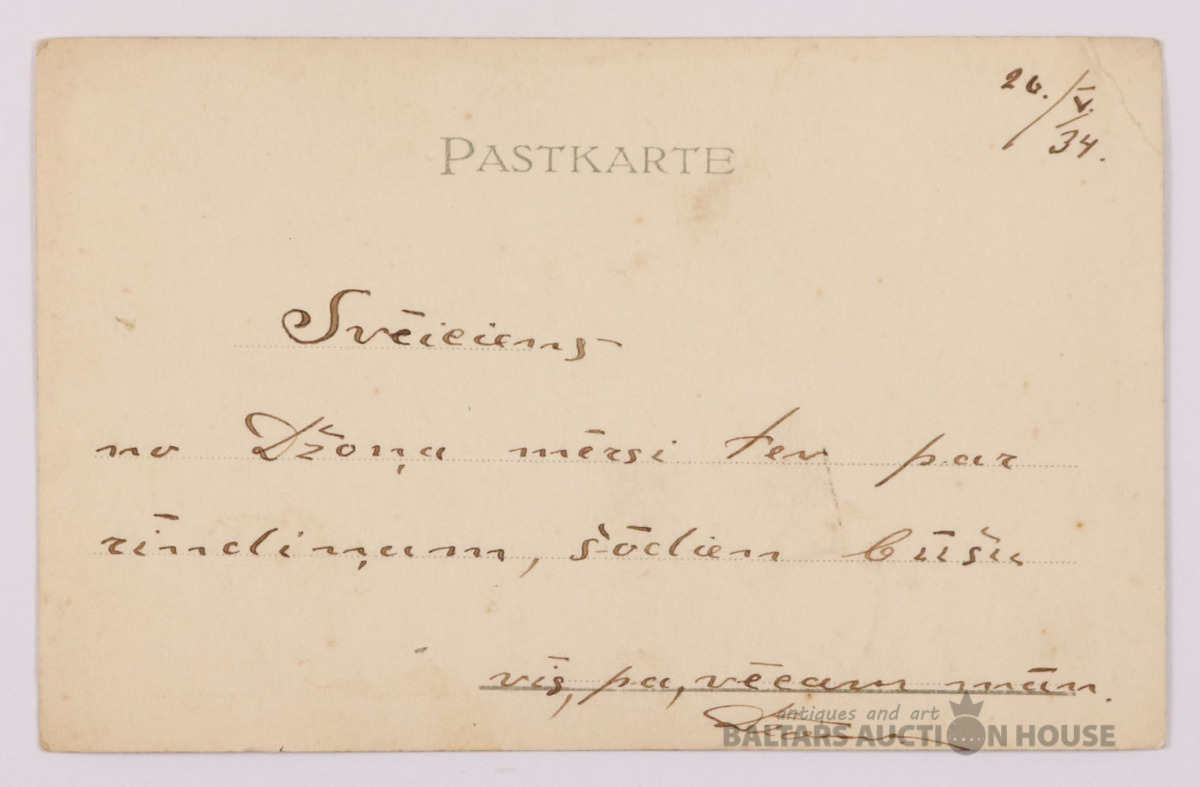 26./V.
34.
PASTKARTE
Svēiciens
no Džoņa mērsi tev par
rīndiņam, šōdien būšu
vīs, pa, vēcam mān.
antiques and art
BALTARS AUCTION HOUSE